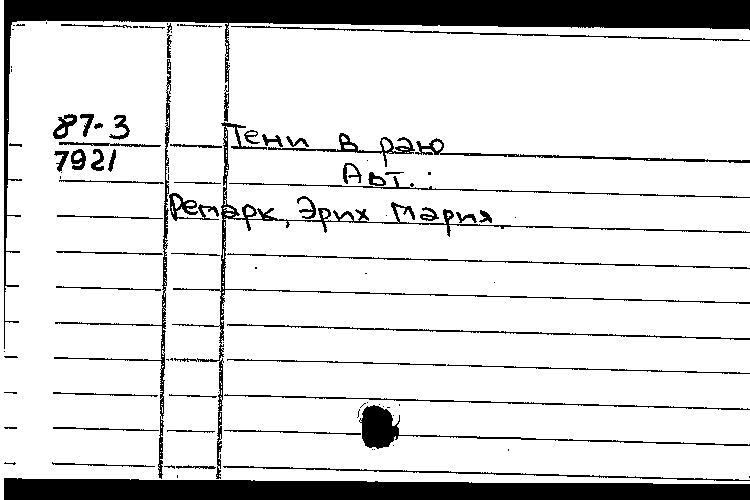 87-3
7921
Тени в раю
Авт.:
Ремарк, Эрих Мария.